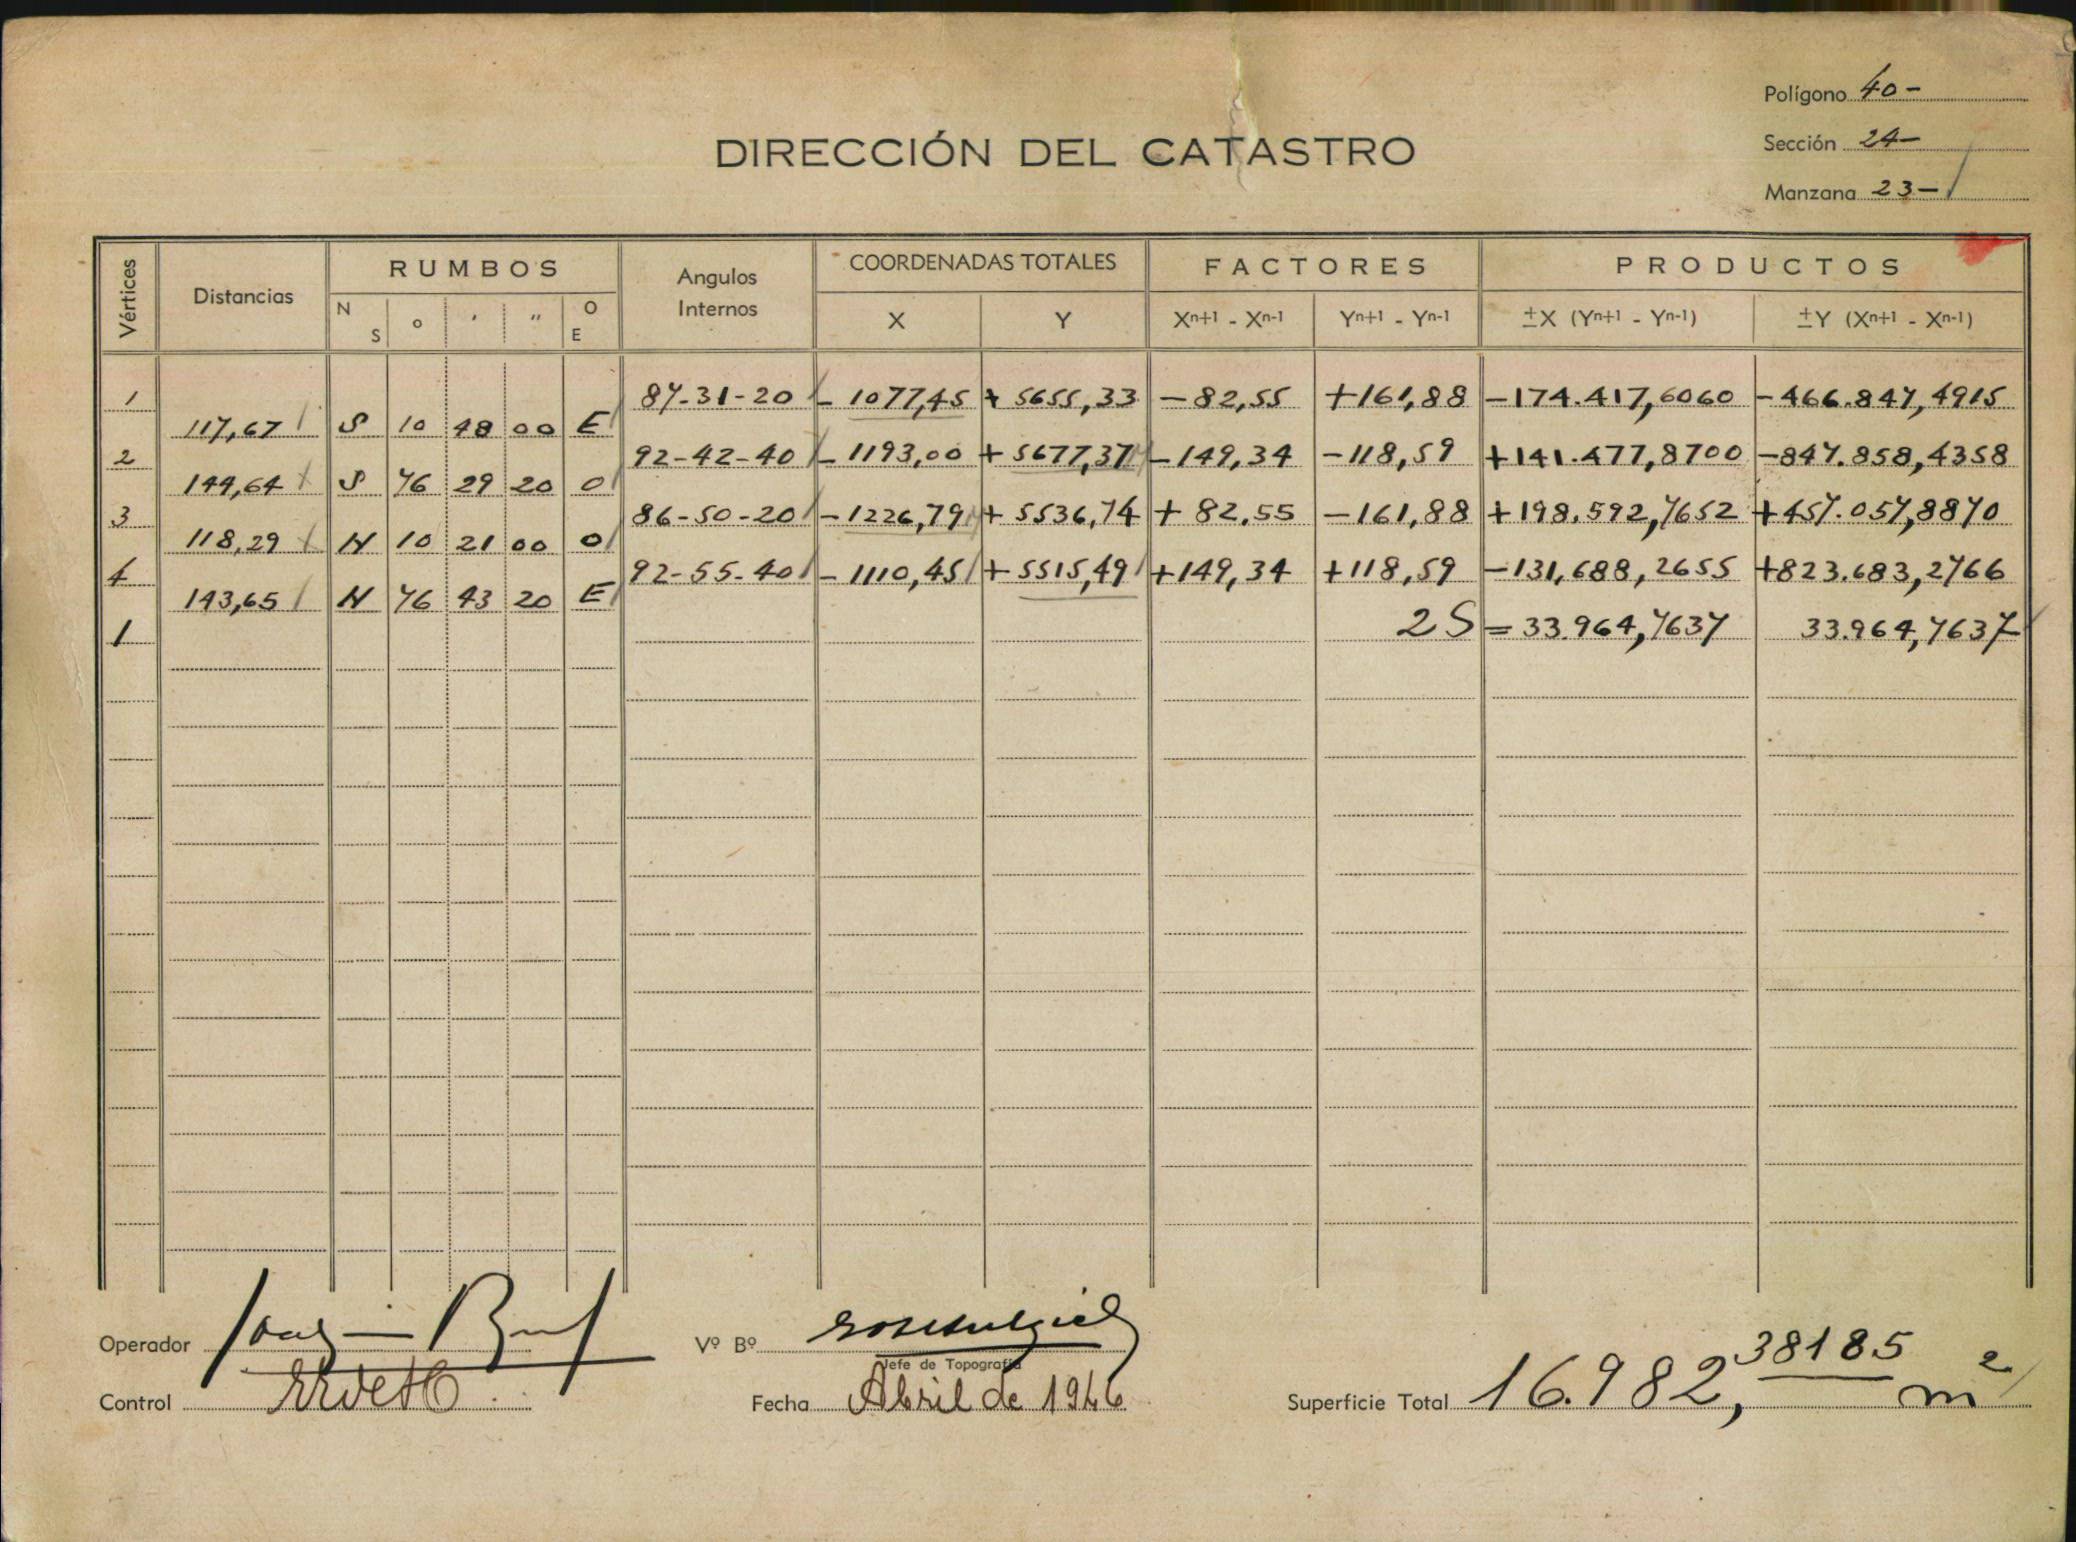 Polígono 40-
Sección 24-
Manzana 23-
DIRECCIÓN DEL CATASTRO
Vértices Distancias RUMBOS Angulos Internos COORDENADAS TOTALES FACTORES PRODUCTOS
N S o ' '' O E X Y Xn+1 - Xn-1 Yn+1 - Yn-1 ±X (Yn+1 - Yn-1) ±Y (Xn+1 - Xn-1)
1 87-31-20 - 1077,45 + 5655,33 -82,55 +161,88 -174.417,6060 -466.847,4915
117,67 S 10 48 00 E
2 92-42-40 - 1193,00 + 5677,37 -149,34 -118,59 +141.477,8700 -847.858,4358
144,64 S 76 29 20 O
3 86-50-20 -1226,79 + 5536,74 + 82,55 -161,88 +198.592,7652 +457.057,8870
118,29 N 10 21 00 O
4 92-55-40 - 1110,45 + 5515,49 +149,34 +118,59 -131,688,2655 +823.683,2766
143,65 N 76 43 20 E
1 2S = 33.964,7637 33.964,7637
Operador Vº Bº
Jefe de Topografía
Control Fecha Abril de 1946 Superficie Total 16.982,38185 m2